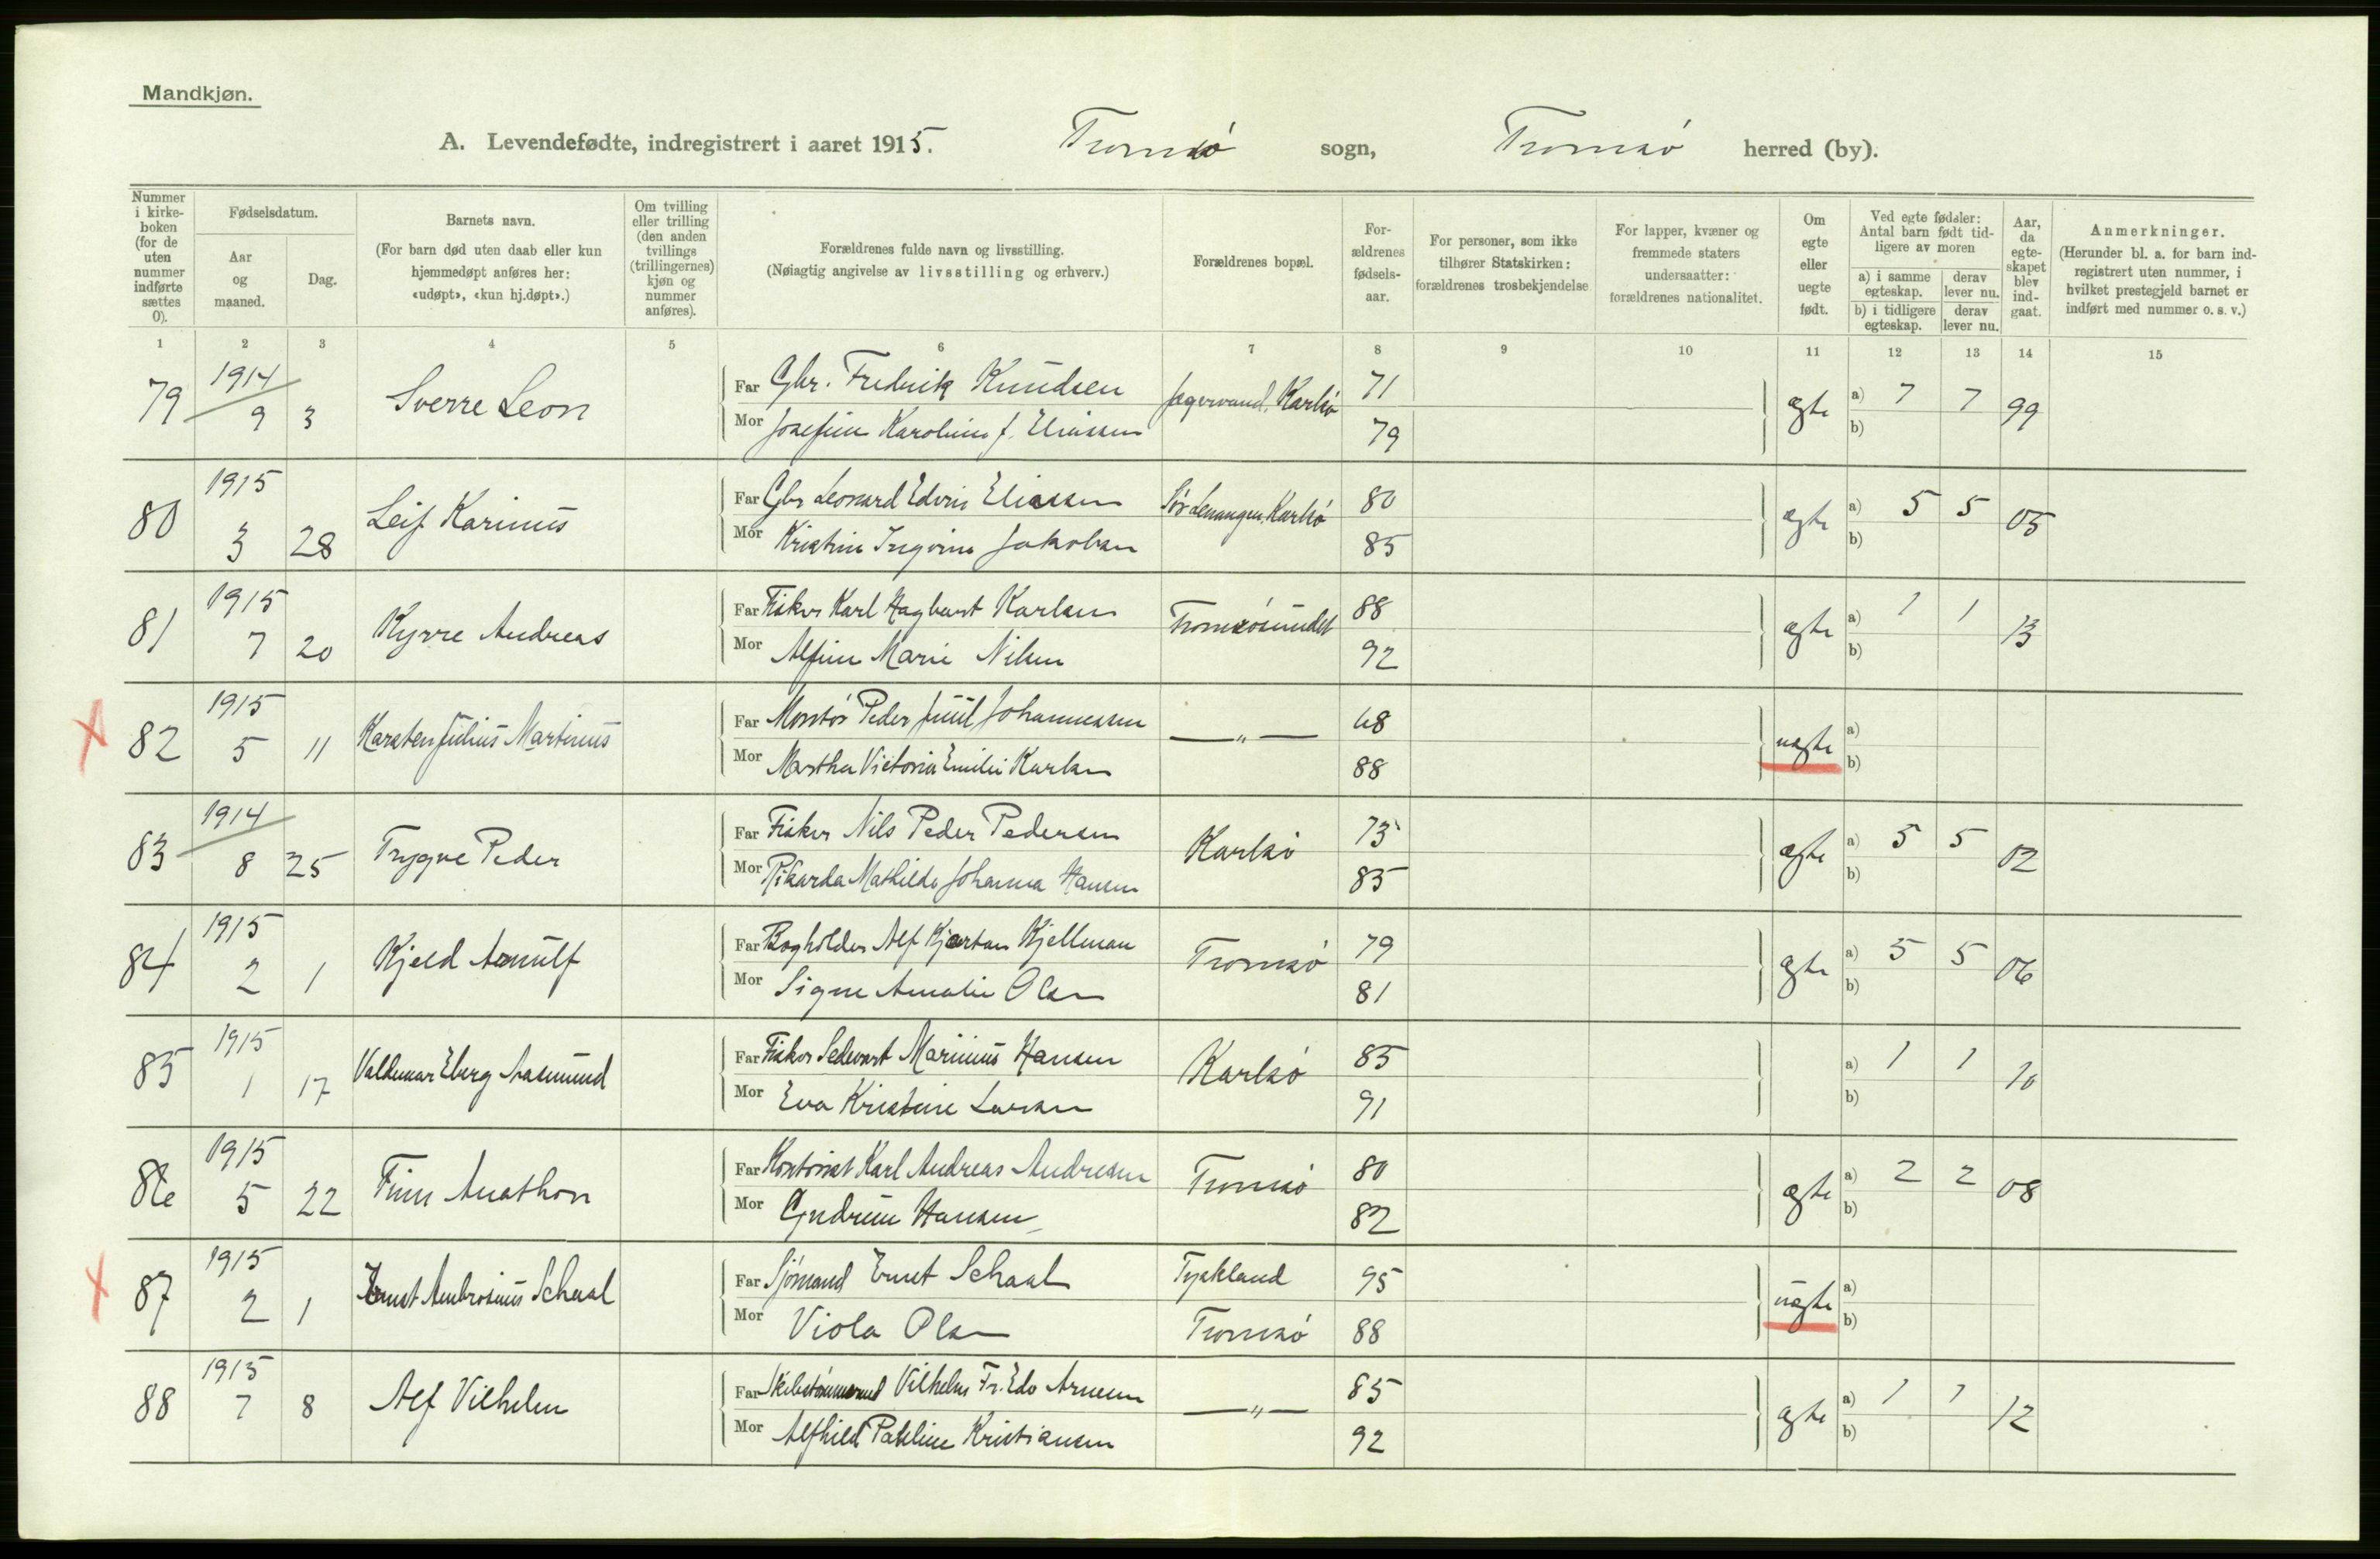 Mandkjøn.
A. Levendefødte, indregistrert i aaret 1915. Tromsø sogn, Tromsø herred (by).
Nummer i kirke-boken (for de uten nummer indførte sættes 0).
Fødselsdatum.
Aar og maaned.
Dag.
Barnets navn.
(For barn død uten daab eller kun hjemmedøpt anføres her: «udøpt», «kun hj.døpt».)
Om tvilling eller trilling (den anden tvillings (trillingernes) kjøn og nummer anføres).
Forældrenes fulde navn og livsstilling.
(Nøiagtig angivelse av livsstilling og erhverv.)
Forældrenes bopæl.
For-ældrenes fødsels-aar.
For personer, som ikke tilhører Statskirken: forældrenes trosbekjendelse
For lapper, kvæner og fremmede staters undersaatter: forældrenes nationalitet.
Om egte eller uegte født.
Ved egte fødsler: Antal barn født tid-ligere av moren
a) i samme egteskap.
derav lever nu.
b) i tidligere egteskap.
derav lever nu.
Aar, da egte-skapet blev ind-gaat.
Anmerkninger.
(Herunder bl. a. for barn ind-registrert uten nummer, i hvilket prestegjeld barnet er indført med nummer o. s. v.)
1 2 3 4 5 6 7 8 9 10 11 12 13 14 15
79 1914 9 3 Sverre Leon
Far Gbr. Fredrik Knudsen Jægervand, Karlsø 71
Mor Josefine Karoline f. Eliassen 79
ægte a) 7 7 99
b)
80 1915 3 28 Leif Karinus
Far Gbr Leonard Edvin Eliassen Sør Lenangen, Karlsø 80
Mor Kristine Ingvine Jakobsen 85
ægte a) 5 5 05
b)
81 1915 7 20 Kyrre Andreas
Far Fisker Karl Hagbart Karlsen Tromsøsundet 88
Mor Alfine Marie Nilsen 92
ægte a) 1 1 13
b)
82 1915 5 11 Karsten Julius Martinus
Far Montør Peder Juul Johannessen —„— 68
Mor Martha Victoria Emilie Karlsen 88
uægte a)
b)
83 1914 8 25 Trygve Peder
Far Fisker Nils Peder Pedersen Karlsø 73
Mor Rikarda Mathilde Johanna Hansen 85
ægte a) 5 5 02
b)
84 1915 2 1 Kjeld Arnulf
Far Bogholder Alf Kjartan Kjellman Tromsø 79
Mor Signe Amalie Olsen 81
ægte a) 5 5 06
b)
85 1915 1 17 Valdemar Eberg Aasmund
Far Fisker Sedevart Marinius Hansen Karlsø 85
Mor Eva Kristine Larsen 91
a) 1 1 10
b)
86 1915 5 22 Finn Anathon
Far Kontorist Karl Andreas Andresen Tromsø 80
Mor Gudrun Hansen 82
ægte a) 2 2 08
b)
87 1915 2 1 Ernst Ambrosius Schaal
Far Sjømand Ernst Schaal Tyskland 95
Mor Viola Olsen Tromsø 88
uægte a)
b)
88 1915 7 8 Alf Vilhelm
Far Skibstømmermd Vilhelm Fr. Edv Arnesen —„— 85
Mor Alfhild Pauline Kristiansen 92
ægte a) 1 1 12
b)